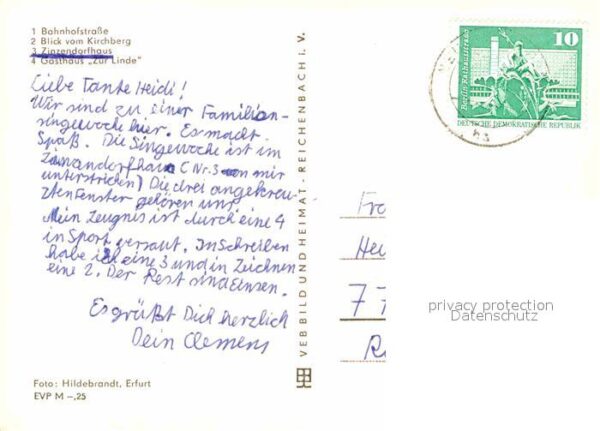 1 Bahnhofstraße
2 Blick vom Kirchberg
3 Zinzendorfhaus
4 Gasthaus „Zur Linde"
Liebe Tante Heidi!
Wir sind zu einer Familien-
singewoche hier. Es macht
Spaß. Die Singewoche ist im
(Nr. 3 von mir
unterstrichen) Die drei angekreu-
zten Fenster gehören uns.
Mein Zeugnis ist durch eine 4
in Sport versaut. In Schreiben
habe ich eine 3 und in Zeichnen
eine 2. Der Rest sind Einsen.
Es grüßt Dich herzlich
Dein Clemens
Foto: Hildebrandt, Erfurt
EVP M –,25
VEB BILD UND HEIMAT · REICHENBACH i. V.
10
Berlin, Rathausstraße
DEUTSCHE DEMOKRATISCHE REPUBLIK
Fra
He
77
R
privacy protection
Datenschutz